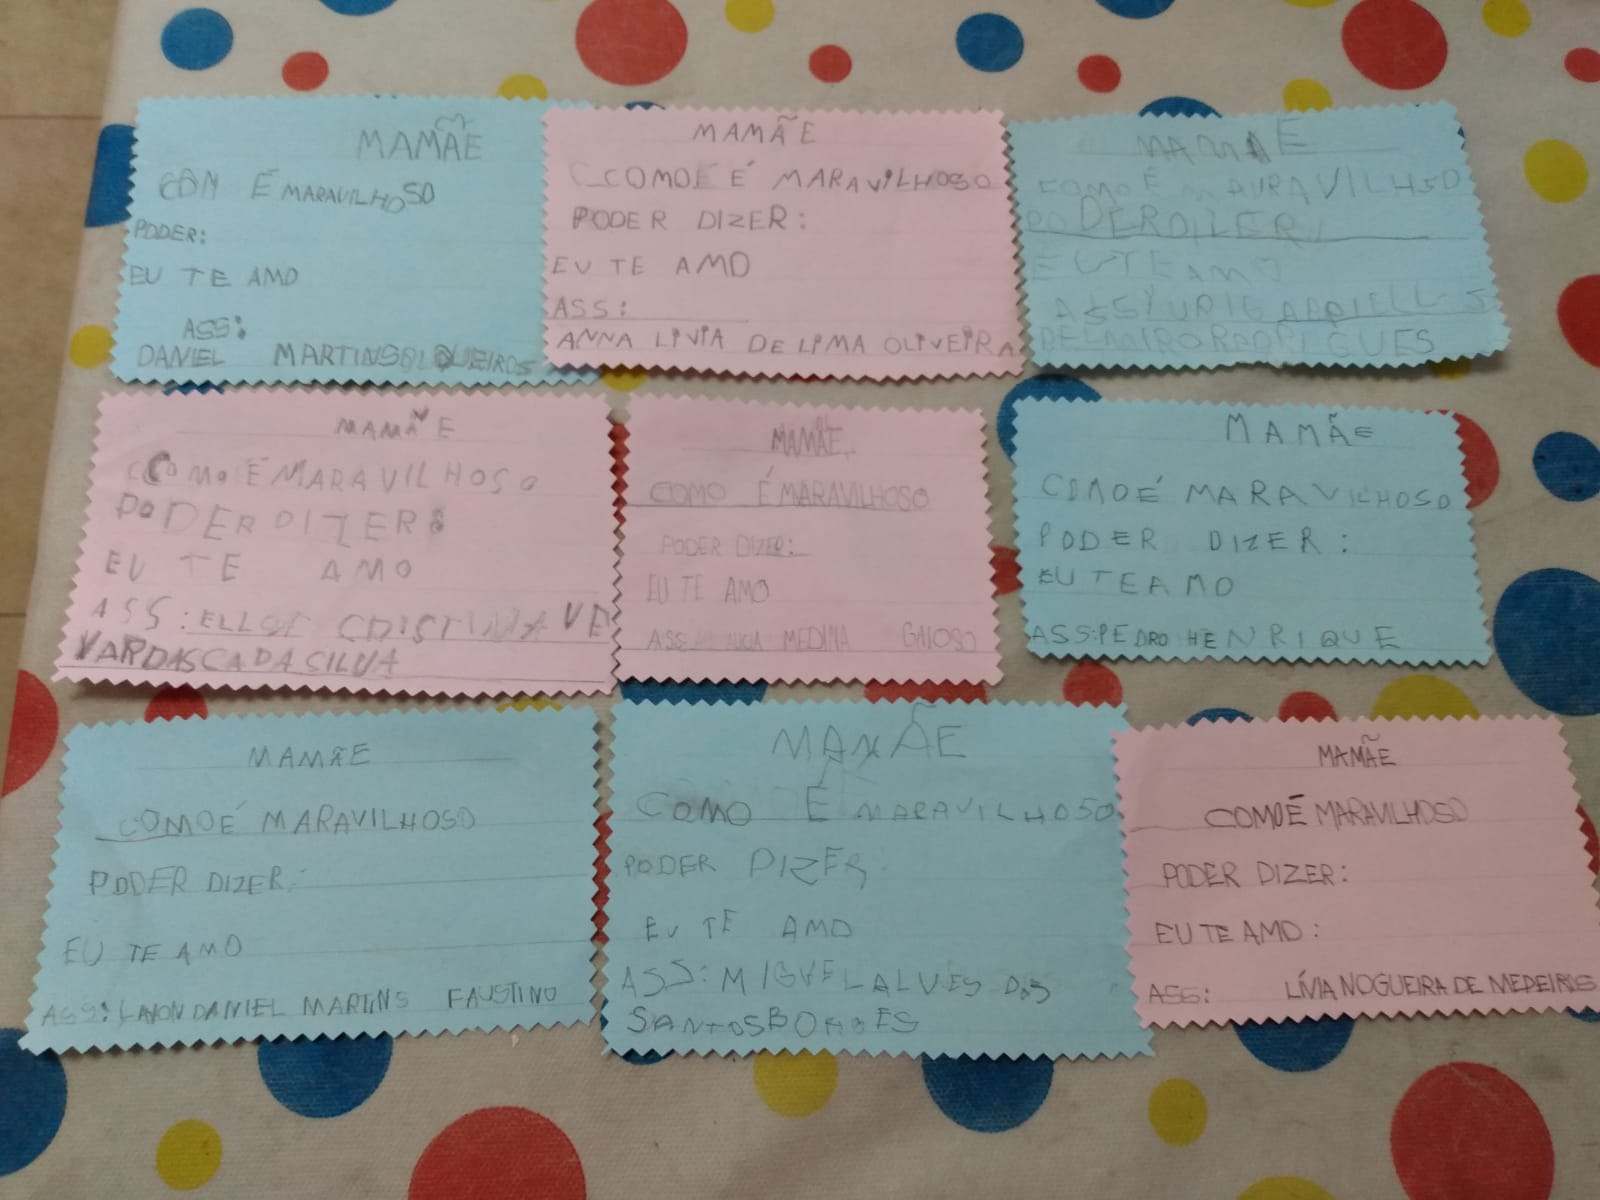 MAMÃE
COM É MARAVILHOSO
PODER:
EU TE AMO
ASS:
DANIEL MARTINS
MAMÃE
COMOE É MARAVILHOSO
PODER DIZER:
EU TE AMO
ASS:
ANNA LIVIA DE LIMA OLIVEIRA
MAMAE
COMO É MAURAVILHSO
PODERDIZER
EU TE AMO
ASS YURI
RODRIGUES
MAMÃE
COMO É MARAVILHOSO
PODER DIZER:
EU TE AMO
ASS:
DA SILVA
MAMÃE
COMO É MARAVILHOSO
PODER DIZER:
EU TE AMO
ASS MEDINA
MAMÃE
COMOÉ MARAVILHOSO
PODER DIZER:
EU TEAMO
ASS:PEDRO HENRIQUE
MAMÃE
COMOÉ MARAVILHOSO
PODER DIZER:
EU TE AMO
ASS: DANIEL MARTINS FAUSTINO
MAMÃE
COMO É MARAVILHOSO
PODER DIZER.
EU TE AMO
ASS: MIGUEL ALVES DOS
SANTOS BORGES
MAMÃE
COMOÉ MARAVILHOSO
PODER DIZER:
EU TE AMO:
ASS: LÍVIA NOGUEIRA DE MEDEIROS